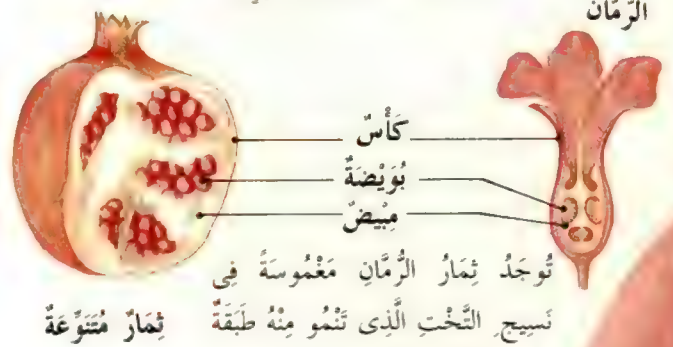 الرُّمَّان
كَأْسٌ
بُوَيْضَةٌ
مِبْيَضٌ
تُوجَدُ ثِمَارُ الرُّمَّانِ مَغْمُوسَةً فِى
نَسِيجِ التَّخْتِ الَّذِى تَنْمُو مِنْهُ طَبَقَةٌ
ثِمَارٌ مُتَنَوِّعَةٌ